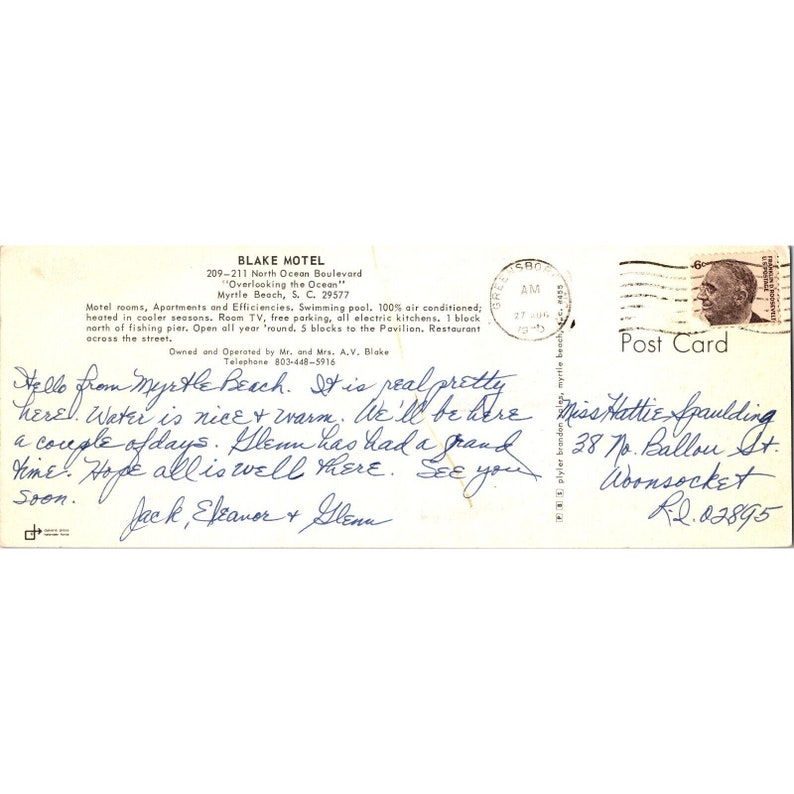 BLAKE MOTEL
209-211 North Ocean Boulevard
"Overlooking the Ocean"
Myrtle Beach, S. C. 29577
Motel rooms, Apartments and Efficiencies. Swimming pool. 100% air conditioned;
heated in cooler seasons. Room TV, free parking, all electric kitchens. 1 block
north of fishing pier. Open all year 'round. 5 blocks to the Pavilion. Restaurant
across the street.
Owned and Operated by Mr. and Mrs. A.V. Blake
Telephone 803-448-5916
Hello from Myrtle Beach. It is real pretty
here. Water is nice + warm. We'll be here
a couple of days. Glenn has had a grand
time. Hope all is well there. See you
soon.
Jack, Eleanor + Glenn
GREENSBORO
AM
27 AUG
plyler brandon sales, myrtle beach, s.c. #455
6c
FRANKLIN D. ROOSEVELT
U.S. POSTAGE
Post Card
Miss Hattie Spaulding
38 No. Ballou St.
Woonsocket
R.I. 02895